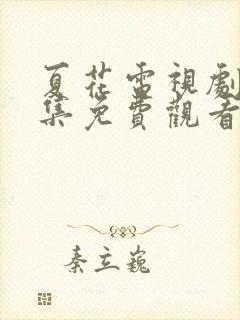 夏花雷視劇
集免費觀看
秦立巍